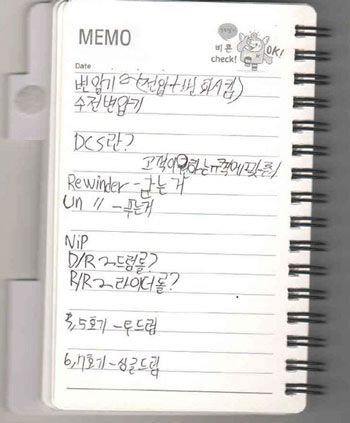 MEMO
비론
check!
OK!
Date
변압기 ~ (전압+1번
수전변압기
DCS란?
고객이 원하는 규격에 맞춤
Rewinder - 감는거
Un 〃 - 푸는거
NiP
D/R ~ 드럼롤?
R/R ~ 라이더롤?
4,5호기 - 투드럼
6,7호기 - 싱글드럼